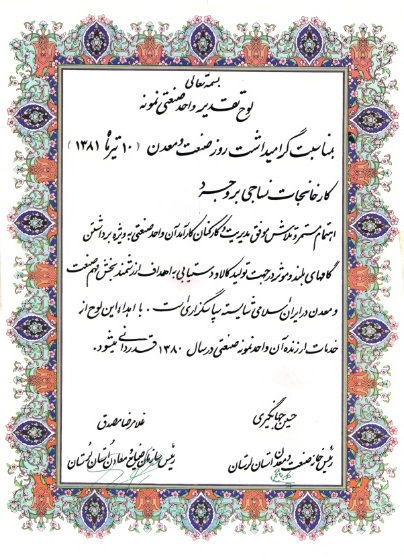 بسمه تعالی
لوح تقدیر واحد صنعتی نمونه
بمناسبت گرامیداشت روز صنعت و معدن ( ۱۰ تیرماه ۱۳۸۱ )
کارخانجات نساجی بروجرد
اهتمام مستمر و تلاش موفق مدیریت و کارکنان کارآمد آن واحد صنعتی به ویژه برداشتن
گامهای بلند و موثر در جهت تولید کالا و دستیابی به اهداف ارزشمند بخش مهم صنعت
و معدن در ایران اسلامی شایسته سپاسگزاری است . با اهداء این لوح از
خدمات ارزنده آن واحد نمونه صنعتی در سال ۱۳۸۰ قدردانی میشود.
حسین جهانگیری
غلامرضا مصدق
رئیس خانه صنعت و معدن استان لرستان
رئیس سازمان صنایع و معادن استان لرستان